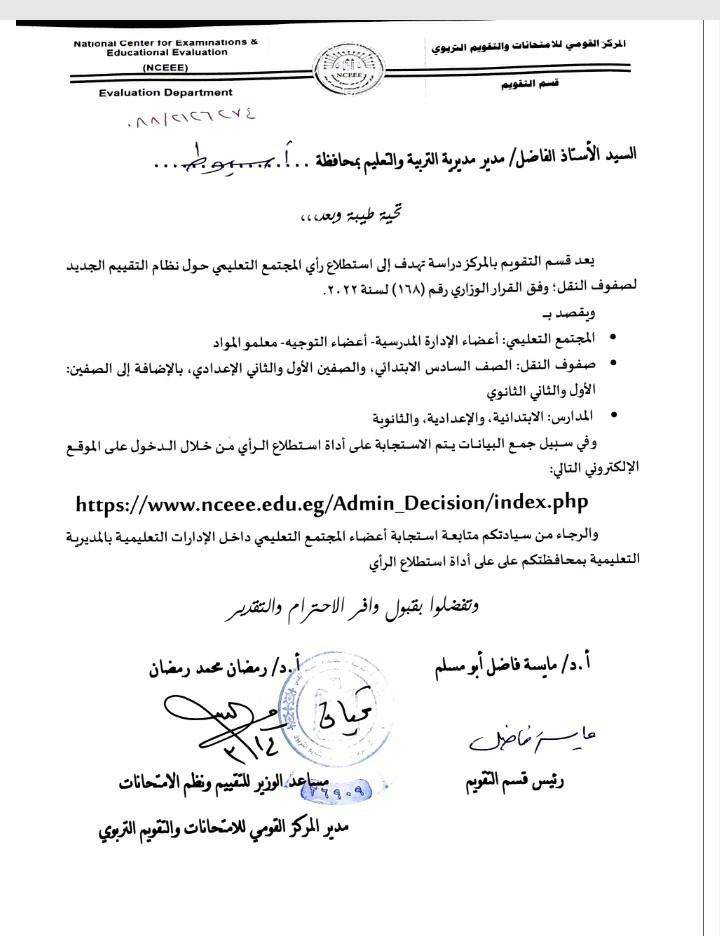 National Center for Examinations &
Educational Evaluation
(NCEEE)
Evaluation Department
المركز القومي للامتحانات والتقويم التربوي
قسم التقويم
NCEEE
٠٨٨/٢١٢٦٢٧٤
السيد الأستاذ الفاضل/ مدير مديرية التربية والتعليم بمحافظة ...أسيوط....
تحية طيبة وبعد،،،
يعد قسم التقويم بالمركز دراسة تهدف إلى استطلاع رأي المجتمع التعليمي حول نظام التقييم الجديد
لصفوف النقل؛ وفق القرار الوزاري رقم (١٦٨) لسنة ٢٠٢٢.
ويقصد بـ
• المجتمع التعليمي: أعضاء الإدارة المدرسية- أعضاء التوجيه- معلمو المواد
• صفوف النقل: الصف السادس الابتدائي، والصفين الأول والثاني الإعدادي، بالإضافة إلى الصفين:
الأول والثاني الثانوي
• المدارس: الابتدائية، والإعدادية، والثانوية
وفي سبيل جمع البيانات يتم الاستجابة على أداة استطلاع الرأي من خلال الدخول على الموقع
الإلكتروني التالي:
https://www.nceee.edu.eg/Admin_Decision/index.php
والرجاء من سيادتكم متابعة استجابة أعضاء المجتمع التعليمي داخل الإدارات التعليمية بالمديرية
التعليمية بمحافظتكم على على أداة استطلاع الرأي
وتفضلوا بقبول وافر الاحترام والتقدير
أ.د/ مايسة فاضل أبو مسلم
أ.د/ رمضان محمد رمضان
مايسة فاضل
رئيس قسم التقويم
مساعد الوزير للتقييم ونظم الامتحانات
٣٦٩٠٩
مدير المركز القومي للامتحانات والتقويم التربوي